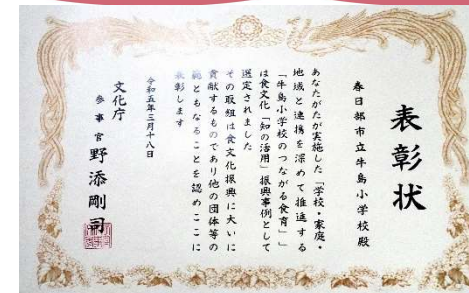 表彰状
春日部市立牛島小学校殿
あなたがたが実施した「学校・家庭・
地域と連携を深めて推進する
「牛島小学校のつながる食育」」
は食文化「知の活用」振興事例として
選定されました
その取組は食文化振興に大いに
貢献するものであり他の団体等の
範ともなることを認めここに
表彰します
令和五年三月十八日
文化庁
参事官 野添剛司